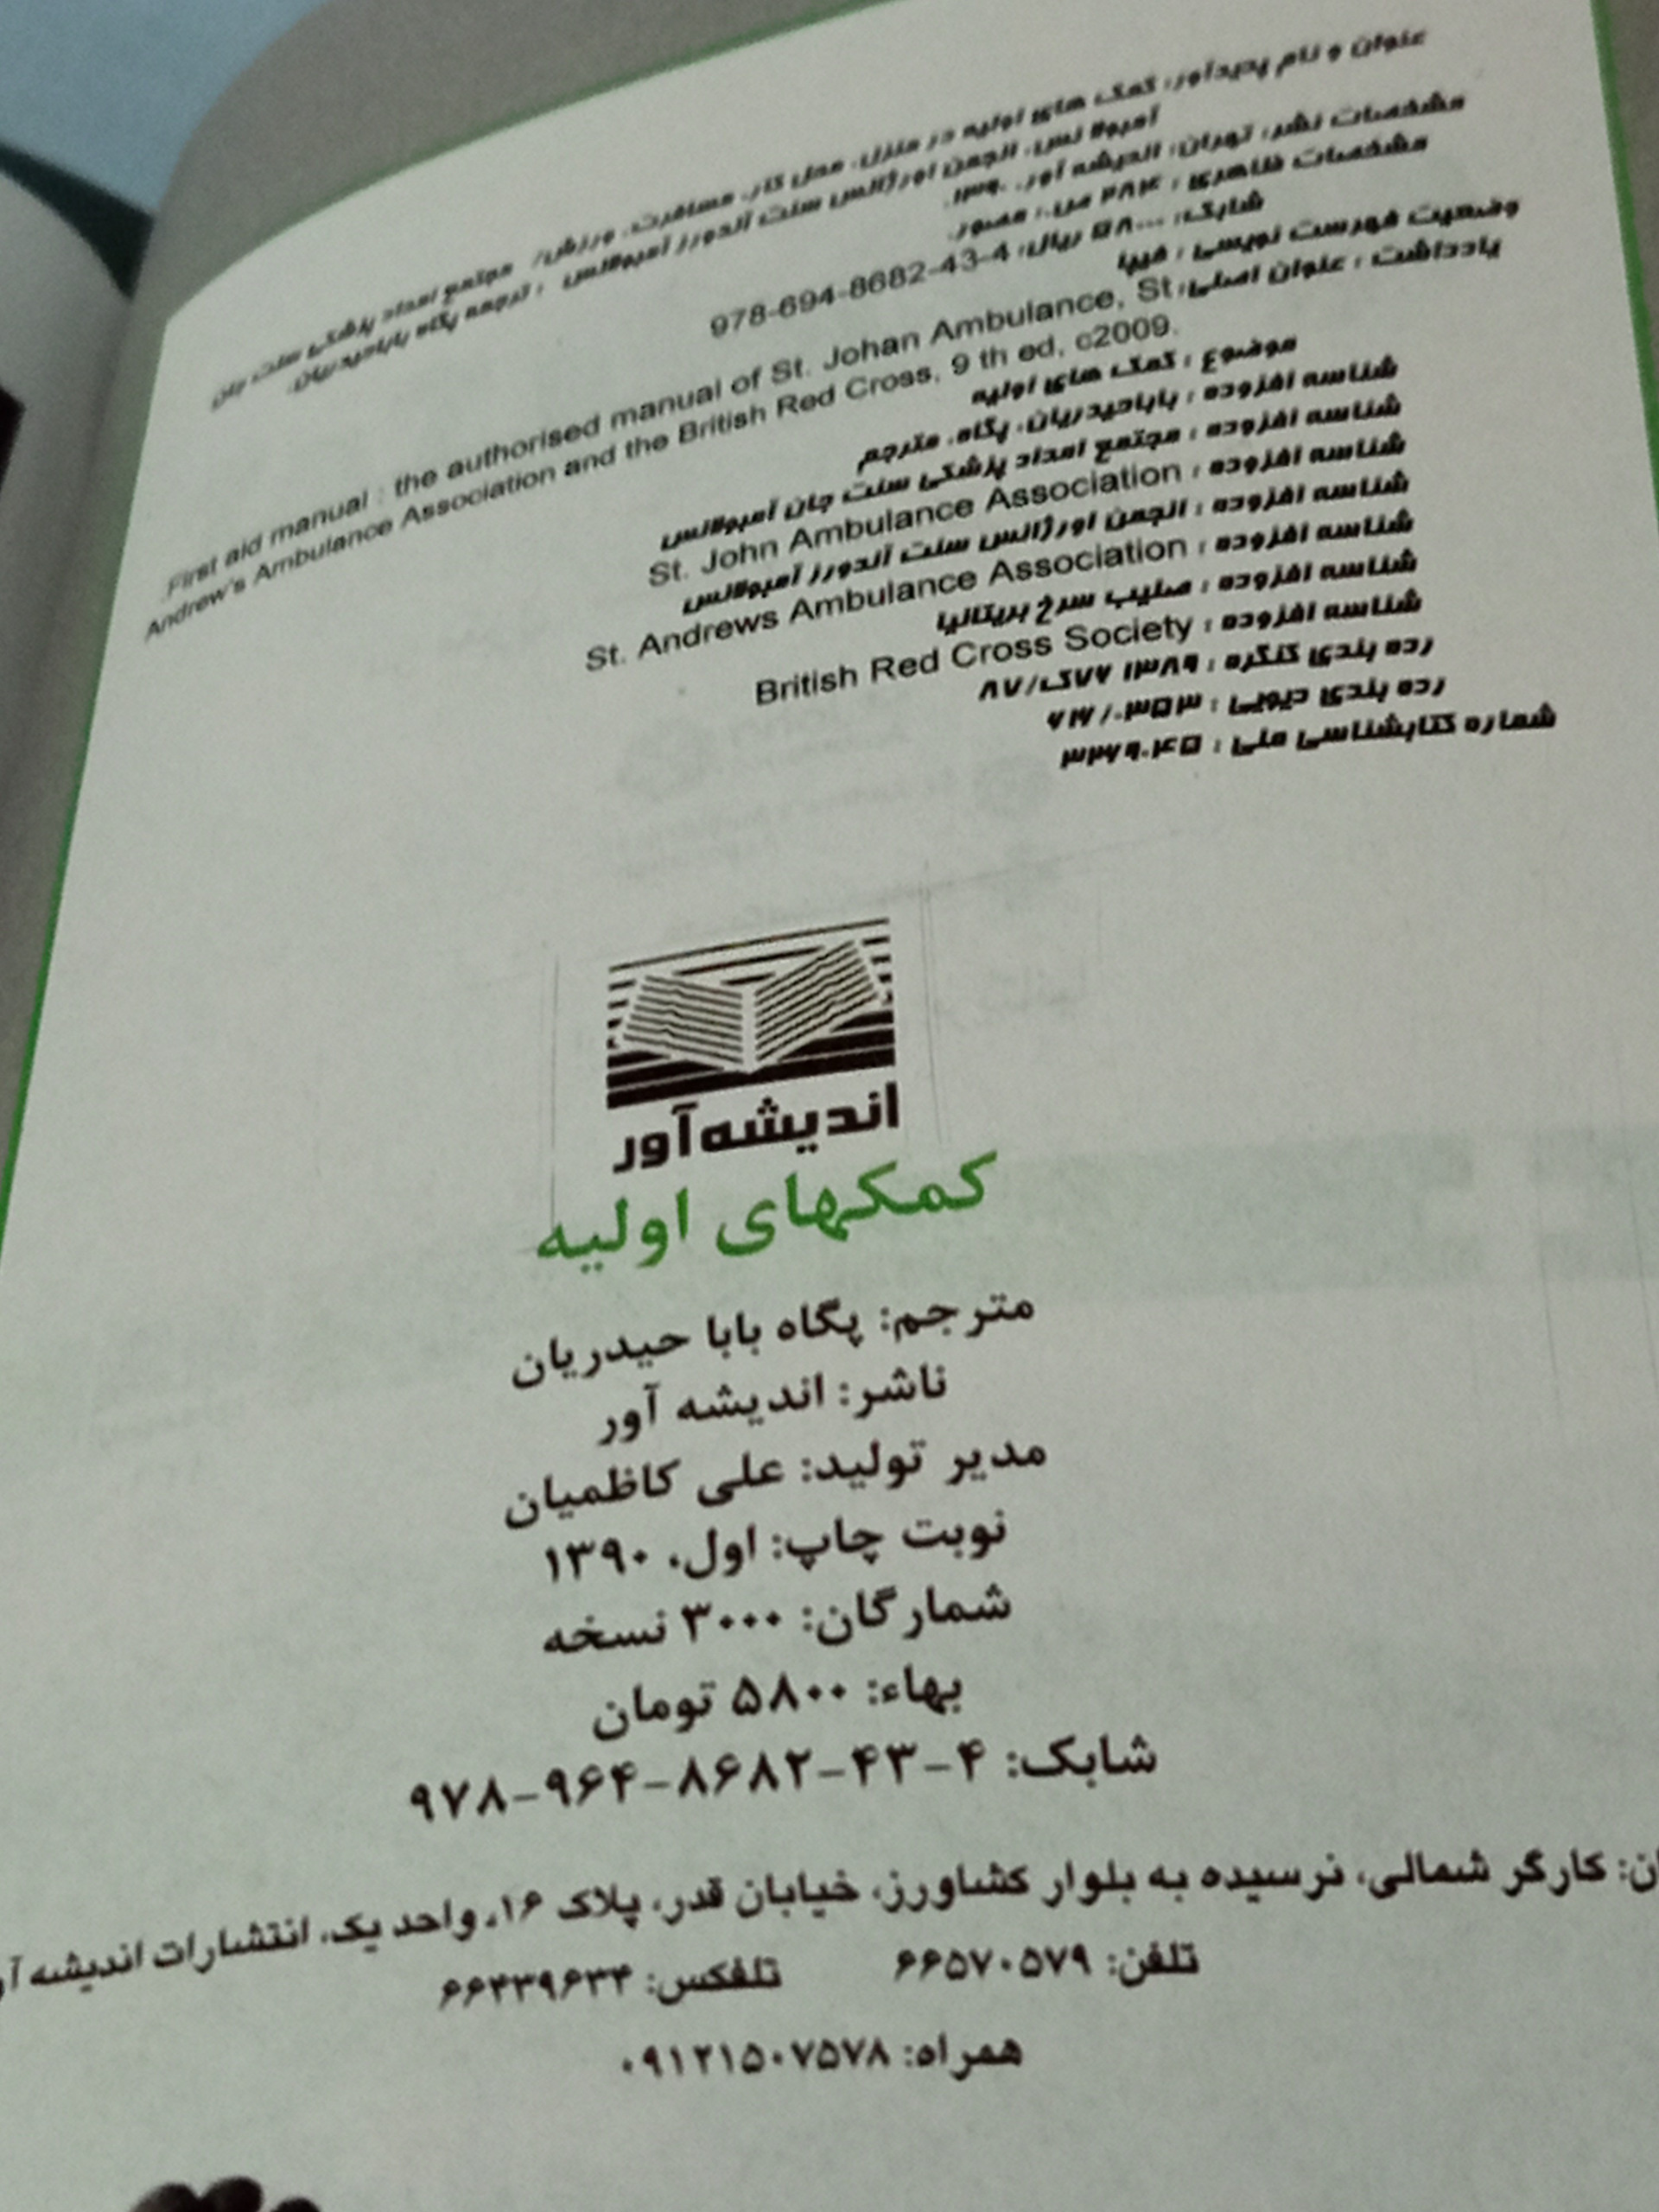 عنوان و نام پدیدآور: کمک های اولیه در منزل، محل کار، مسافرت، ورزش/ مجتمع امداد پزشکی سنت جان
آمبولانس، انجمن اورژانس سنت آندورز آمبولانس ؛ ترجمه پگاه باباحیدریان.
مشخصات نشر: تهران: اندیشه آور، ۱۳۹۰.
مشخصات ظاهری : ۲۸۴ ص.: مصور.
شابک: ۵۸۰۰۰ ریال: 978-694-8682-43-4
وضعیت فهرست نویسی : فیپا
یادداشت : عنوان اصلی: First aid manual : the authorised manual of St. Johan Ambulance, St
Andrew's Ambulance Association and the British Red Cross, 9 th ed, c2009.
موضوع : کمک های اولیه
شناسه افزوده : باباحیدریان، پگاه، مترجم
شناسه افزوده : مجتمع امداد پزشکی سنت جان آمبولانس
شناسه افزوده : St. John Ambulance Association
شناسه افزوده : انجمن اورژانس سنت آندورز آمبولانس
شناسه افزوده : St. Andrews Ambulance Association
شناسه افزوده : صلیب سرخ بریتانیا
شناسه افزوده : British Red Cross Society
رده بندی کنگره : ۱۳۸۹ ۷۶ک/۸۷
رده بندی دیویی :
شماره کتابشناسی ملی :
اندیشه‌آور
کمکهای اولیه
مترجم: پگاه بابا حیدریان
ناشر: اندیشه آور
مدیر تولید: علی کاظمیان
نوبت چاپ: اول، ۱۳۹۰
شمارگان: ۳۰۰۰ نسخه
بهاء: ۵۸۰۰ تومان
شابک: ۴-۴۳-۸۶۸۲-۹۶۴-۹۷۸
کارگر شمالی، نرسیده به بلوار کشاورز، خیابان قدر، پلاک ۱۶، واحد یک، انتشارات اندیشه
تلفن: ۶۶۵۷۰۵۷۹ تلفکس: ۶۶۴۳۹۶۳۴
همراه: ۰۹۱۲۱۵۰۷۵۷۸